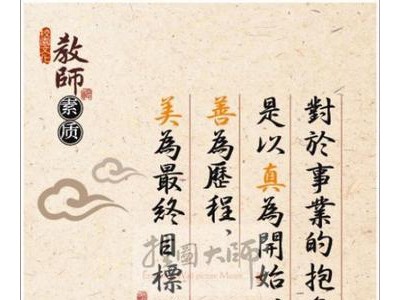 校園文化
教師
素质
對於事業的抱
是以真為開始，
善為歷程、
美為最終目標